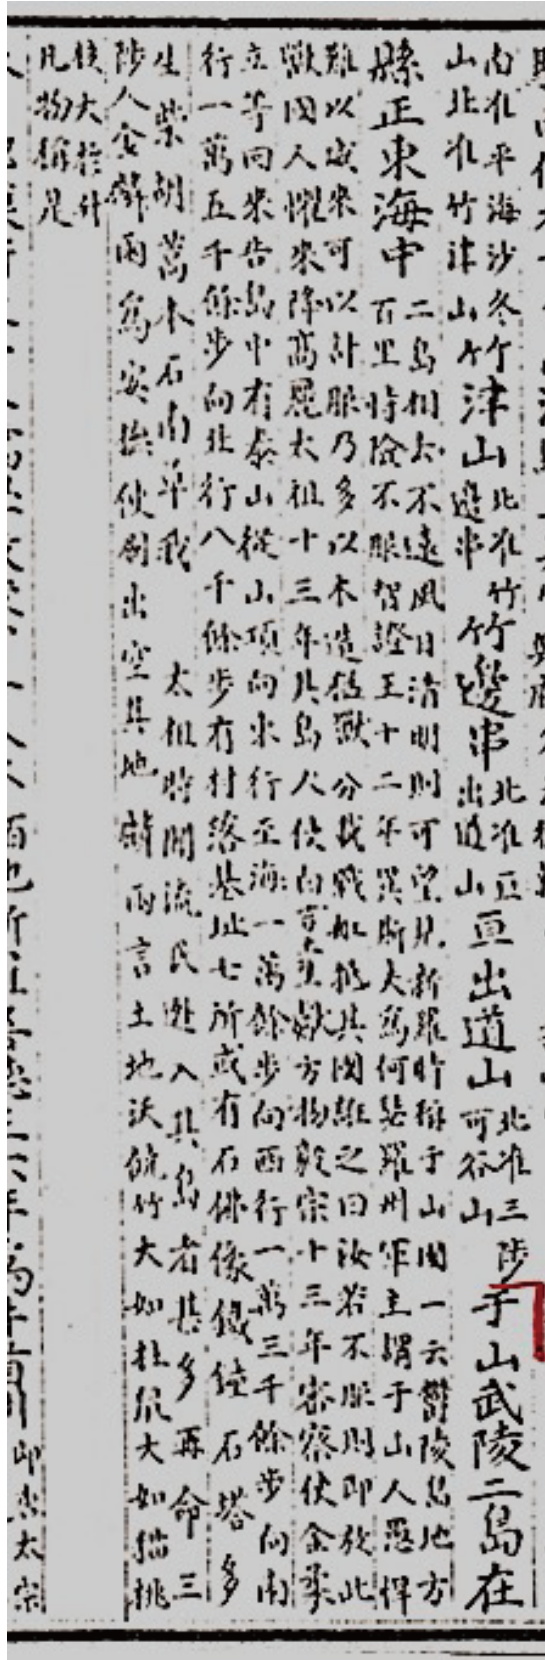 南准平海沙冬山北准竹津山竹津山北准竹邊串竹邊串北准亘出道山亘出道山北准三陟可谷山于山武陵二島在
縣正東海中二島相去不遠風日清明則可望見新羅時稱于山國一云欝陵島地方百里恃險不服智證王十二年異斯夫爲何瑟羅州軍主謂于山人愚悍
難以威來可以計服乃多以木造猛獸分載戰船抵其國誑之曰汝若不服則即放此獸國人懼來降高麗太祖十三年其島人使白吉土豆獻方物毅宗十三年審察使金柔
立等回來告島中有泰山從山頂向東行至海一萬餘步向西行一萬三千餘步向南行一萬五千餘步向北行八千餘步有村落基址七所或有石佛像鐵鍾石塔多
生柴胡蒿本石南草我 太祖時聞流民逃入其島者甚多再命三陟人金麟雨爲安撫使刷出空其地麟雨言土地沃饒竹大如柱鼠大如猫桃
核大於升凡物稱是